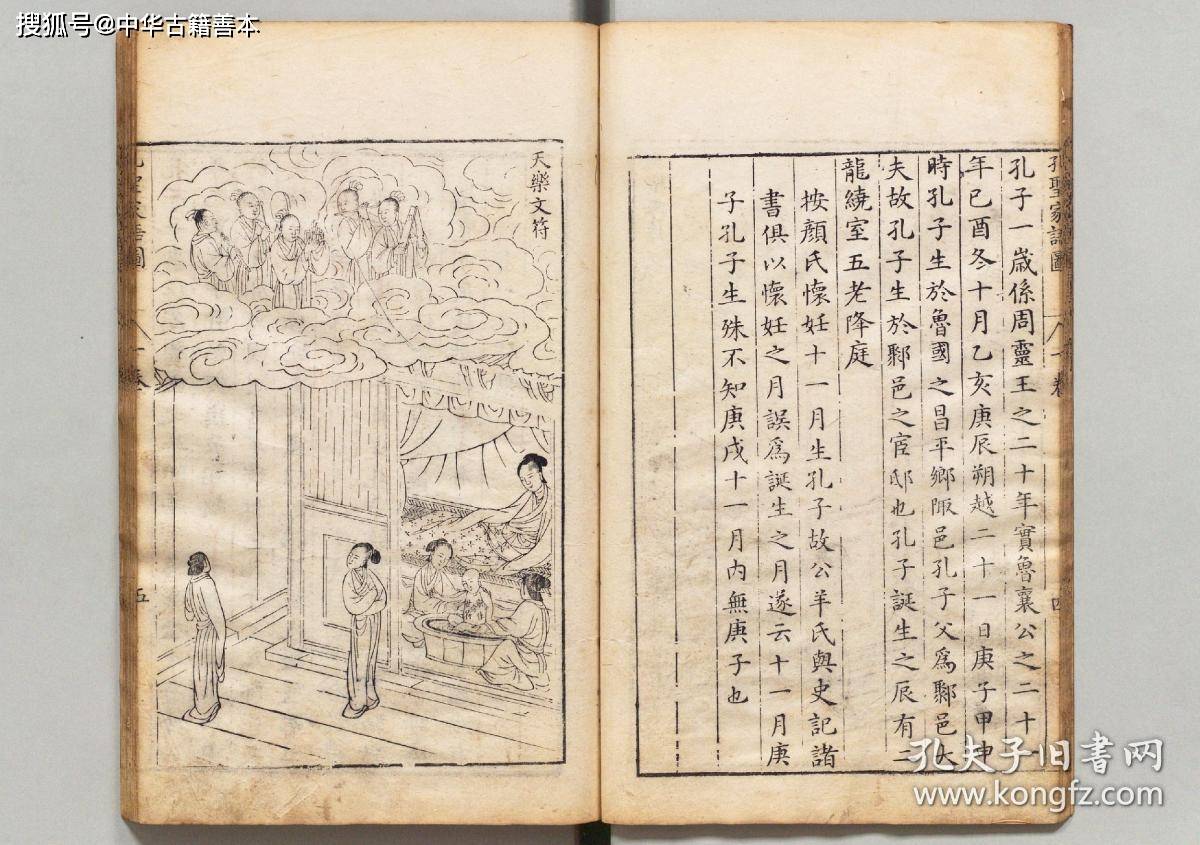 搜狐号@中华古籍善本
孔聖家語圖
一卷
四
孔子一歲係周靈王之二十年實魯襄公之二十
年已酉冬十月乙亥庚辰朔越二十一日庚子甲申
時孔子生於魯國之昌平鄉陬邑孔子父爲鄹邑大
夫故孔子生於鄹邑之宦邸也孔子誕生之辰有二
龍繞室五老降庭
按顏氏懷妊十一月生孔子故公羊氏與史記諸
書俱以懷妊之月誤爲誕生之月遂云十一月庚
子孔子生殊不知庚戌十一月內無庚子也
天樂文符
五
孔夫子旧书网
www.kongfz.com